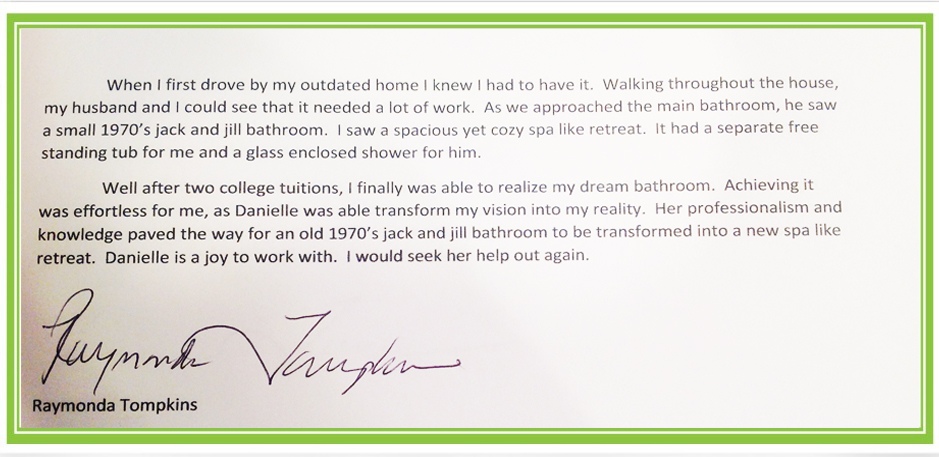 When I first drove by my outdated home I knew I had to have it. Walking throughout the house,
my husband and I could see that it needed a lot of work. As we approached the main bathroom, he saw
a small 1970's jack and jill bathroom. I saw a spacious yet cozy spa like retreat. It had a separate free
standing tub for me and a glass enclosed shower for him.
Well after two college tuitions, I finally was able to realize my dream bathroom. Achieving it
was effortless for me, as Danielle was able transform my vision into my reality. Her professionalism and
knowledge paved the way for an old 1970's jack and jill bathroom to be transformed into a new spa like
retreat. Danielle is a joy to work with. I would seek her help out again.
Raymonda Tompkins
Raymonda Tompkins